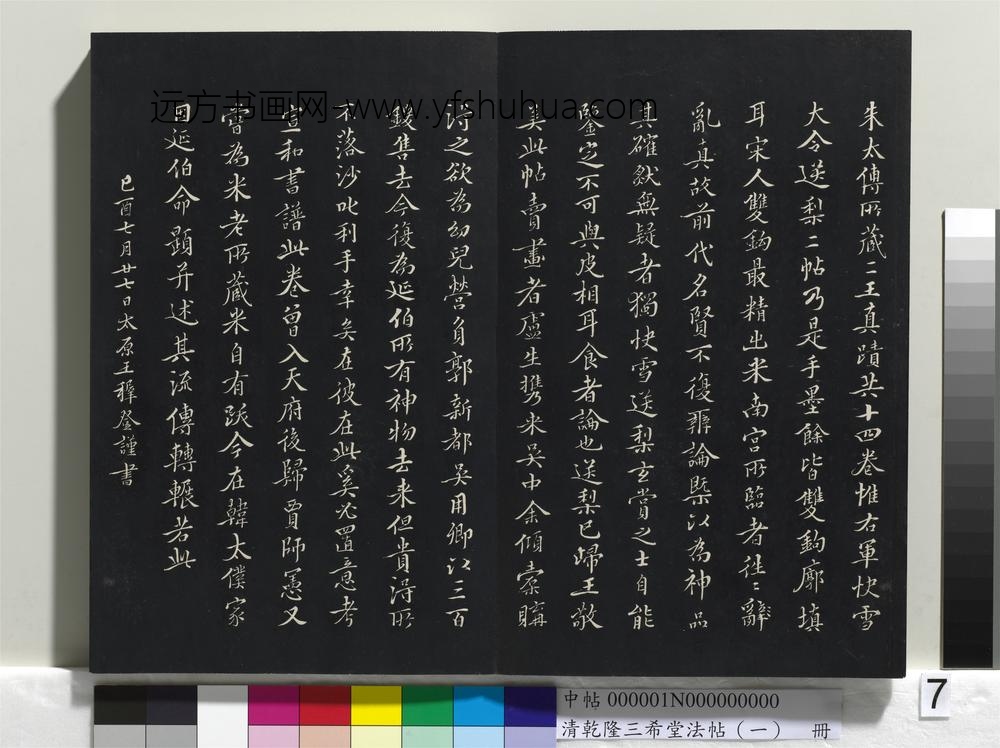 朱太傅所藏二王真蹟共十四卷惟右軍快雪
大令送梨二帖乃是手墨餘皆雙鉤廓填
耳宋人雙鉤最精出米南宮所臨者往〻
亂真故前代名賢不復辨論槩以為神品
其確然無疑者獨快雪送梨玄賞之士自能
鑒定不可與皮相耳食者論也送梨已歸王敬
美此帖賣畫者盧生攜來吳中余傾橐購
得之欲為幼兒營負郭新都吳用卿以三百
鍰售去今復為延伯所有神物去來但貴得所
不落沙叱利手幸矣在彼在此奚必置意考
宣和書譜此卷曾入天府後歸賈師憲又
嘗為米老所藏米自有跋今在韓太僕家
因延伯命題并述其流傳轉輾若此
己酉七月廿七日太原王穉登謹書
远方书画网-www.yfshuhua.com
7
中帖 000001N000000000
清乾隆三希堂法帖（一） 冊